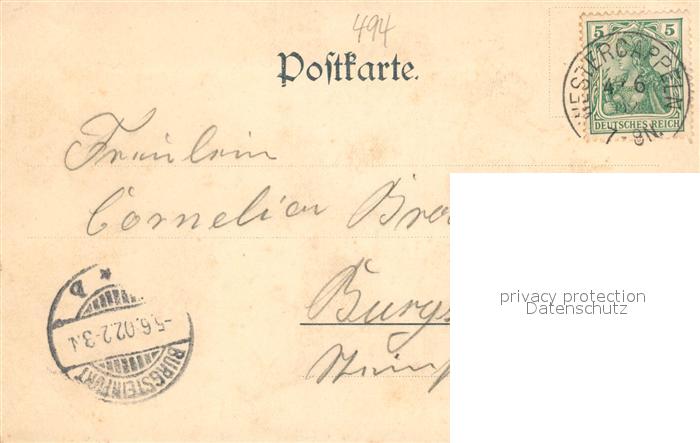 494
Postkarte.
5 5
DEUTSCHES REICH
WESTERCAPPELN
4 6
7-8N.
Fräulein
Cornelia
privacy protection
Datenschutz
-5.6.02.2-3.N
BURGSTEINFURT
* D